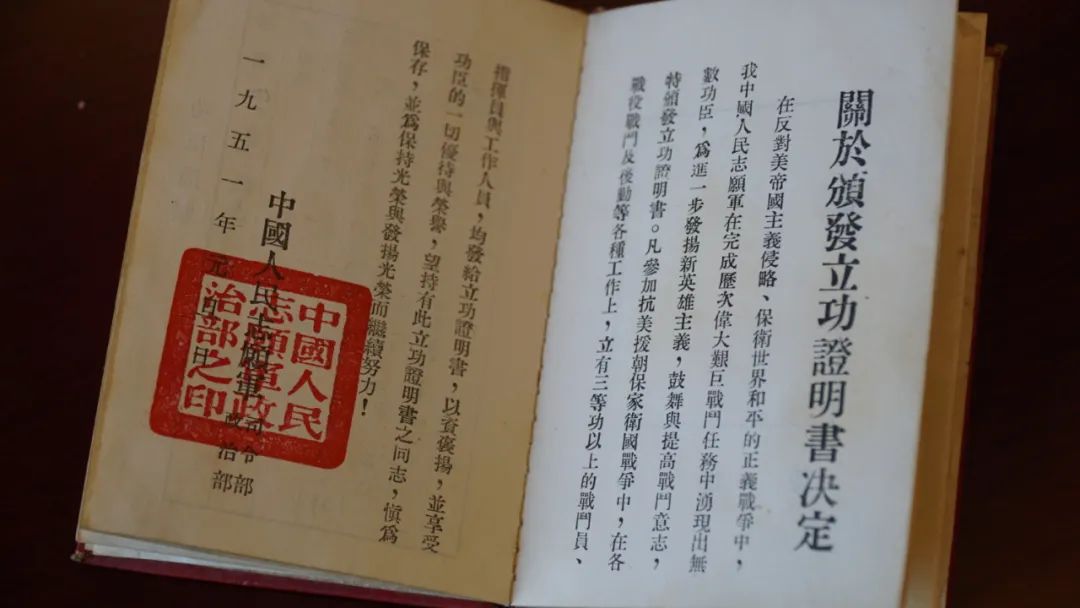 關於頒發立功證明書决定
在反對美帝國主義侵略、保衛世界和平的正義戰爭中，
我中國人民志願軍在完成歷次偉大艱巨戰鬥任務中湧現出無
數功臣，爲進一步發揚新英雄主義，鼓舞與提高戰鬥意志，
特頒發立功證明書。凡參加抗美援朝保家衛國戰爭中，在各
戰役戰鬥及後勤等各種工作上，立有三等功以上的戰鬥員、
指揮員與工作人員，均發給立功證明書，以資褒揚，並享受
功臣的一切優待與榮譽，望持有此立功證明書之同志，愼爲
保存，並爲保持光榮與發揚光榮而繼續努力！
中國人民志願軍
司令部
政治部
一九五一年元月 日
中國人民
志願軍政
治部之印